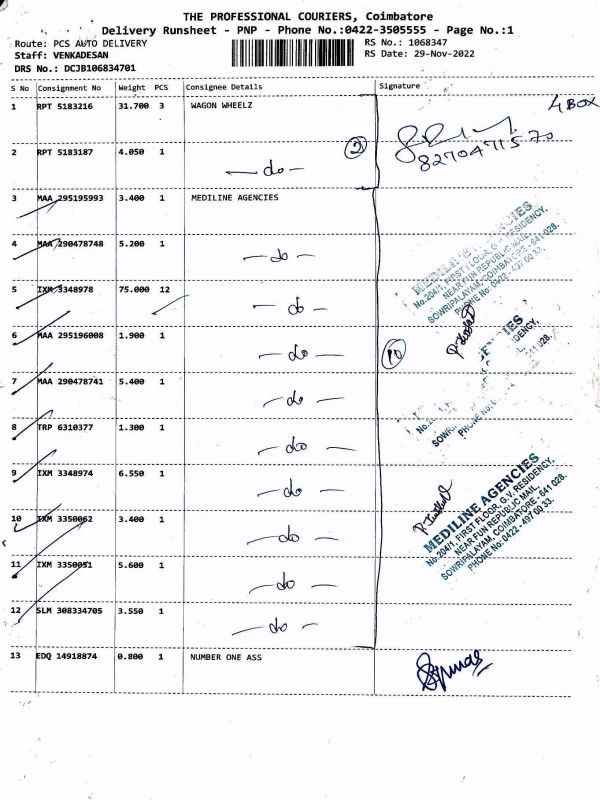 THE PROFESSIONAL COURIERS, Coimbatore
Delivery Runsheet - PNP - Phone No.:0422-3505555 - Page No.:1
Route: PCS AUTO DELIVERY RS No.: 1068347
Staff: VENKADESAN RS Date: 29-Nov-2022
DRS No.: DCJB106834701
S No Consignment No Weight PCS Consignee Details Signature
1 RPT 5183216 31.700 3 WAGON WHEELZ
4 BOX
8270471570
2 RPT 5183187 4.050 1 — do — 2
3 MAA 295195993 3.400 1 MEDILINE AGENCIES
4 MAA 290478748 5.200 1 — do —
5 IXM 3348978 75.000 12 — do —
6 MAA 295196008 1.900 1 — do — 10
7 MAA 290478741 5.400 1 — do —
8 TRP 6310377 1.300 1 — do —
9 IXM 3348974 6.550 1 — do —
10 IXM 3350062 3.400 1 — do —
11 IXM 3350051 5.600 1 — do —
12 SLM 308334705 3.550 1 — do —
13 EDQ 14918874 0.800 1 NUMBER ONE ASS
MEDILINE AGENCIES
No.204/1, FIRST FLOOR, G.V. RESIDENCY,
NEAR FUN REPUBLIC MAIL,
SOWRIPALAYAM, COIMBATORE - 641 028.
PHONE No: 0422 - 497 00 33.
MEDILINE AGENCIES
No.204/1, FIRST FLOOR, G.V. RESIDENCY,
NEAR FUN REPUBLIC MAIL,
SOWRIPALAYAM, COIMBATORE - 641 028.
PHONE No: 0422 - 497 00 33.